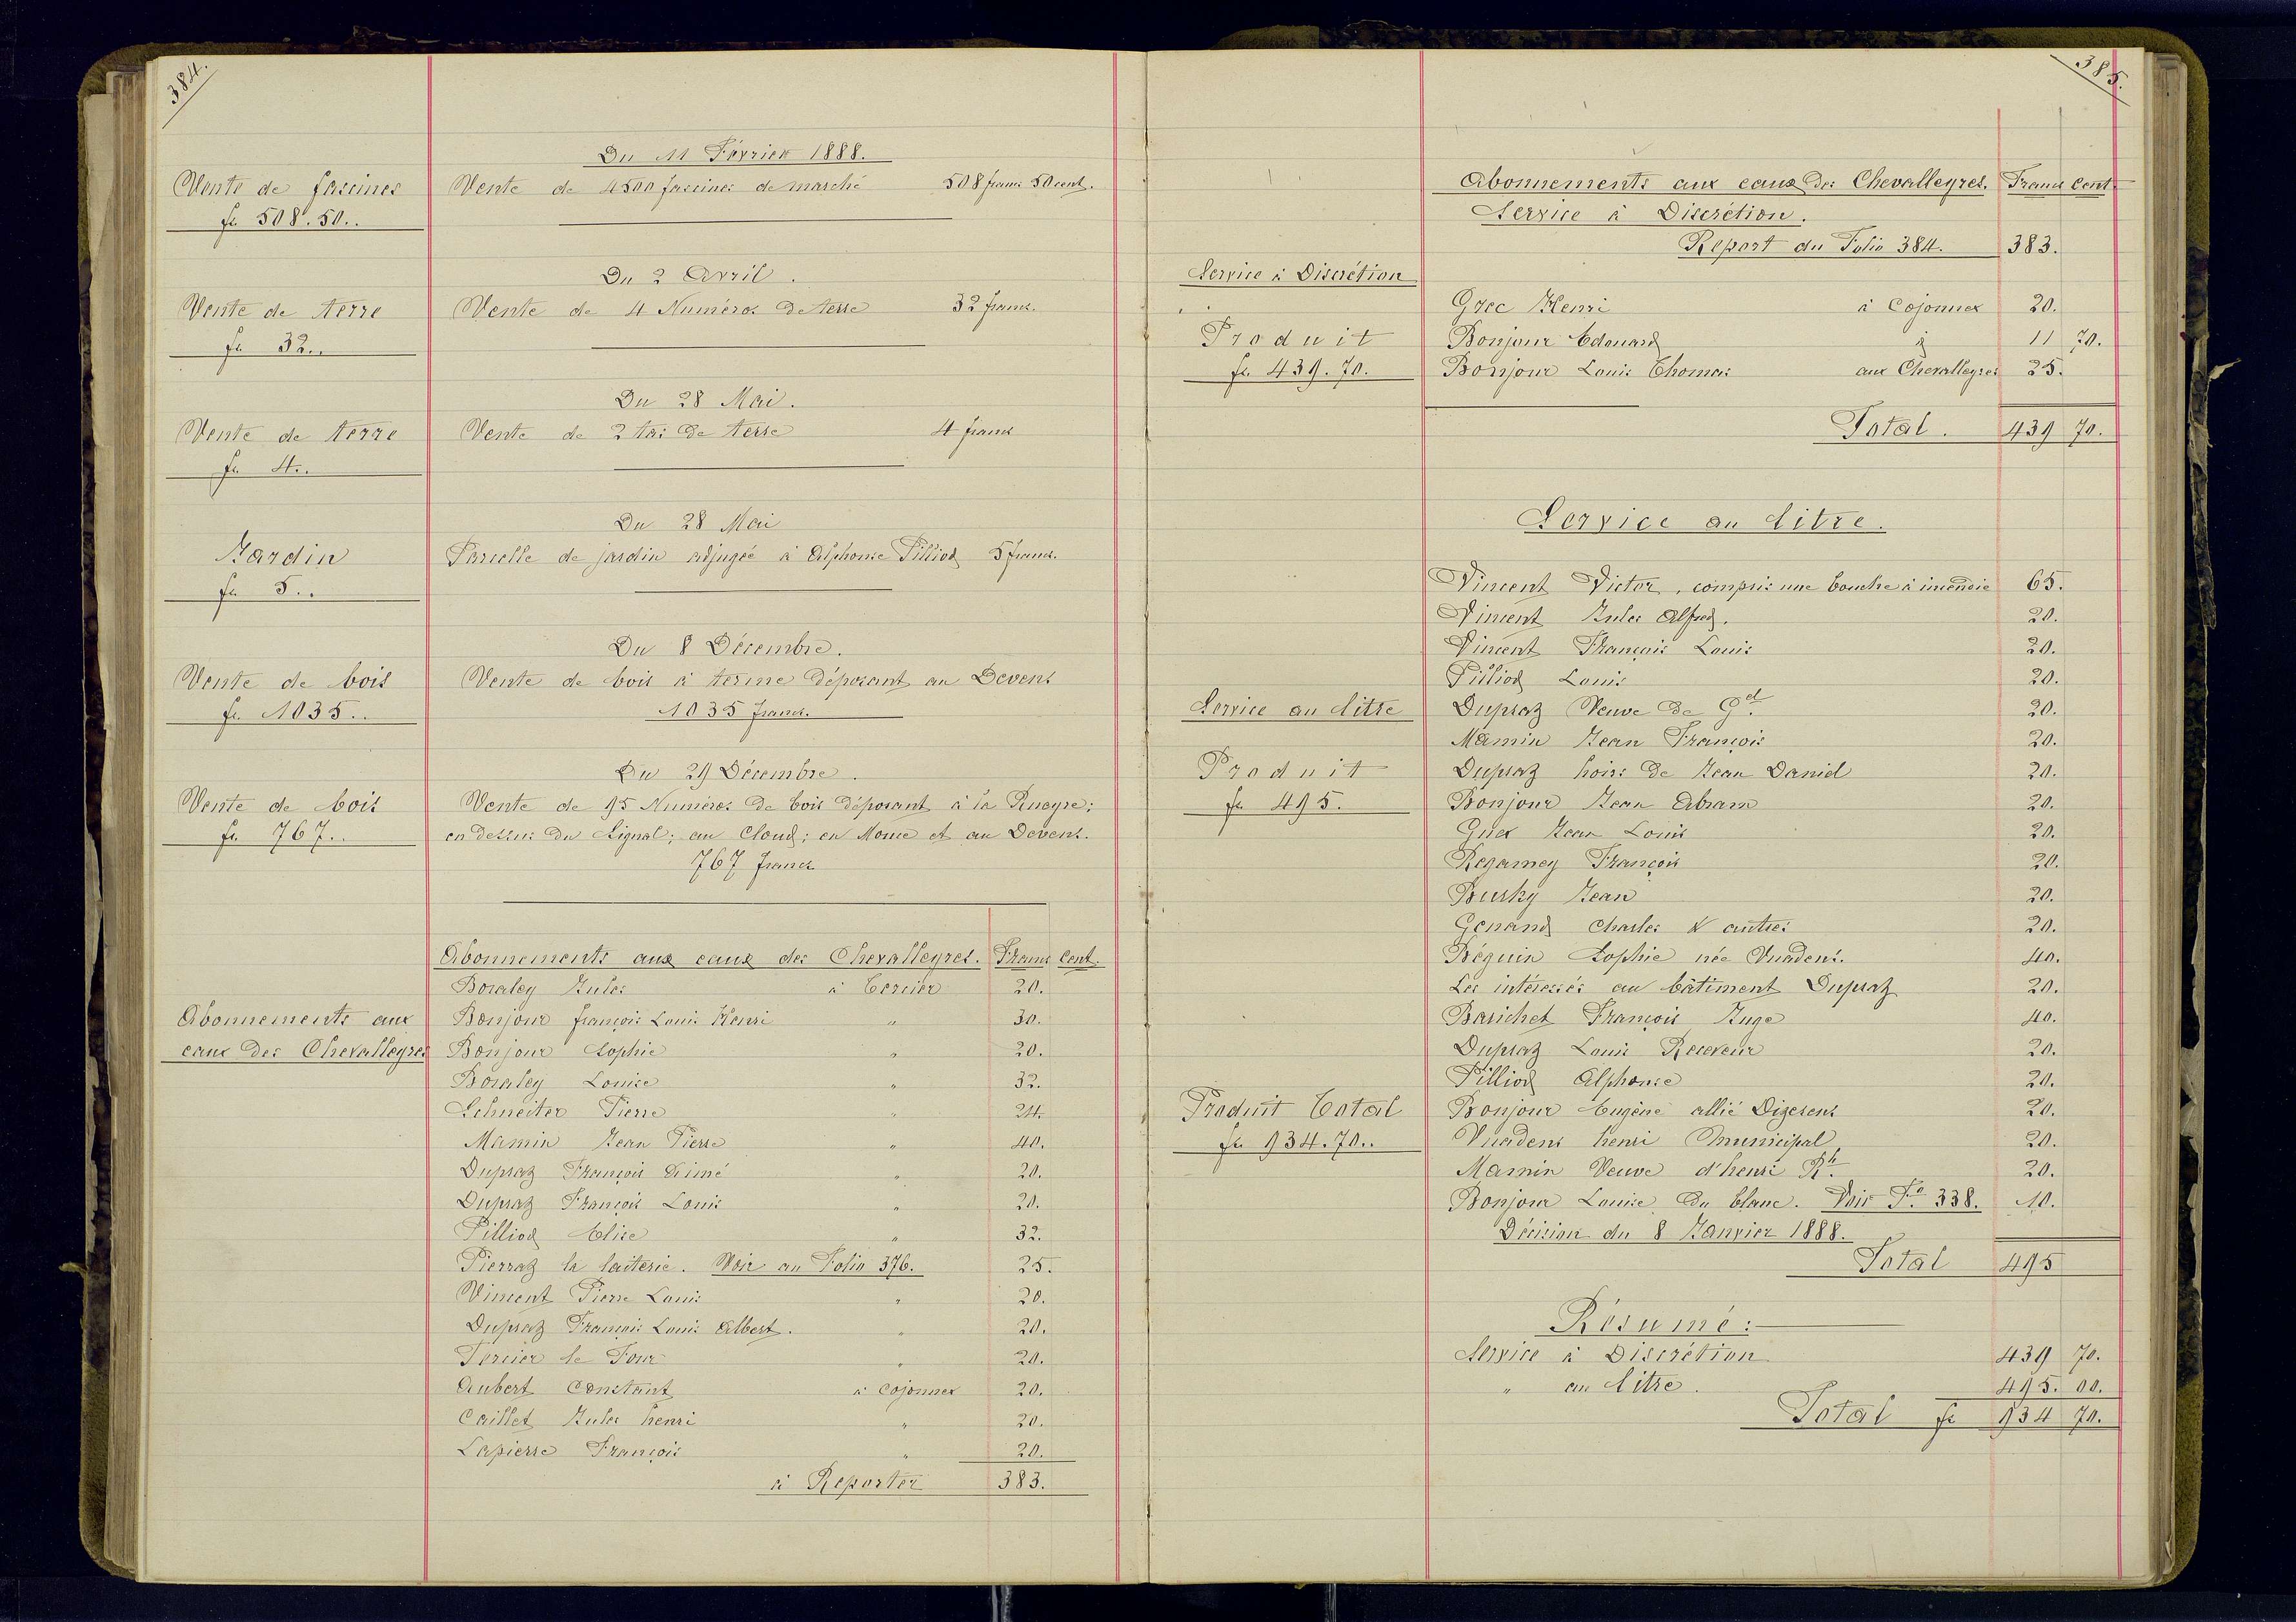 384.
Du 11 Février 1888.
Vente de fascines
fr. 508.50..
Vente de 4500 fascines de marché 508 francs 50 cent.
Du 2 Avril.
Vente de terre
fr. 32..
Vente de 4 Numéros de terre 32 francs.
Du 28 Mai.
Vente de terre
fr. 4..
Vente de 2 tas de terre 4 francs
Du 28 Mai
Jardin
fr. 5..
Parcelle de jardin adjugée à Alphonse Pilliod 5 francs.
Du 8 Décembre.
Vente de bois
fr. 1035..
Vente de bois à terme déposant au Devens
1035 francs.
Du 29 Décembre.
Vente de bois
fr. 767..
Vente de 95 Numéros de bois déposant à la Rueyre;
en dessus du Signal; au Cloud; en Monce et au Devens.
767 francs
Abonnements aux
eaux des Chevalleyres
Abonnements aux eaux des Chevalleyres. Francs Cent.
Boraley Jules à Tercier 20.
Bonjour françois Louis Henri " 30.
Bonjour Sophie " 20.
Boraley Louise " 32.
Schneiter Pierre " 24.
Mamin Jean Pierre " 40.
Dupraz François Aimé " 20.
Dupraz François Louis " 20.
Pilliod Elise " 32.
Pierraz la laiterie. Voir au Folio 376. 25.
Vincent Pierre Louis " 20.
Dupraz François Louis Albert. " 20.
Tercier le Four " 20.
Aubert Constant à Cojonnex 20.
Caillet Jules henri " 20.
Lapierre François " 20.
à Reporter 383.
385.
Abonnements aux eaux des Chevalleyres. Francs Cent.
Service à Discrétion.
Report du Folio 384. 383.
Service à Discrétion
Produit
fr. 439.70.
Grec Henri à Cojonnex 20.
Bonjour Edouard à 11 70.
Bonjour Louis Thomas aux Chevalleyres 25.
Total. 439 70.
Service au litre.
Service au litre
Produit
fr. 495.
Vincent Victor, compris une bouche à incendie 65.
Vincent Jules Alfred. 20.
Vincent François Louis 20.
Pilliod Louis 20.
Dupraz Veuve de Gel. 20.
Mamin Jean François 20.
Dupraz hoirs de Jean Daniel 20.
Bonjour Jean Abram 20.
Guex Jean Louis 20.
Regamey François 20.
Bursky Jean 20.
Genand Charles & autres 20.
Béguin Sophie née Vuadens. 40.
Les intéressés au bâtiment Dupraz 20.
Barichet François Juge 40.
Dupraz Louis Receveur 20.
Pilliod Alphonse 20.
Produit Total
fr. 934.70..
Bonjour Eugène allié Dizerens 20.
Vuadens henri Municipal 20.
Mamin Veuve d'henri Rh. 20.
Bonjour Louise du blanc. Voir Fo. 338. 10.
Décision du 8 Janvier 1888.
Total 495
Résumé:
Service à Discrétion 439 70.
" au litre. 495. 00.
Total fr 934 70.